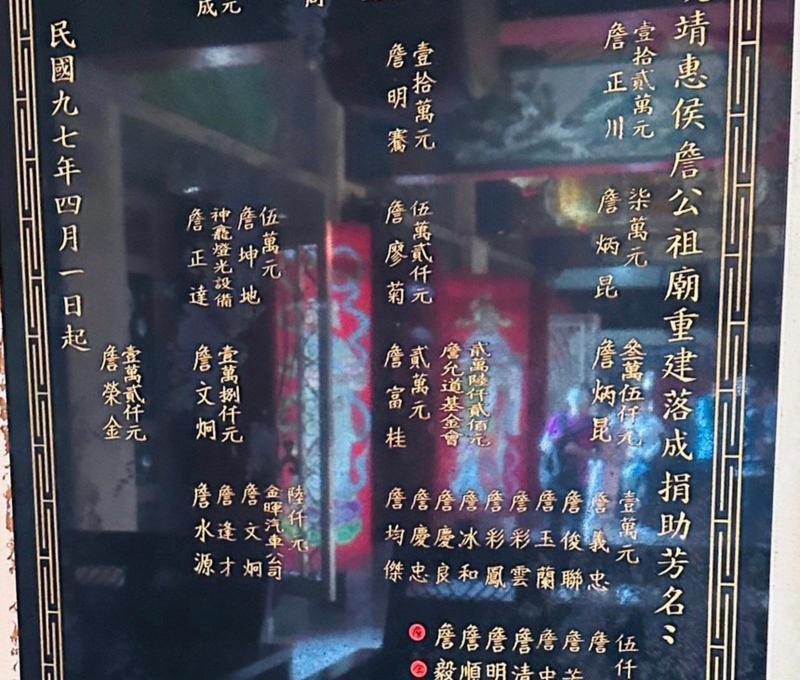 靖惠侯詹公祖廟重建落成捐助芳名：
壹拾貳萬元
詹正川
柒萬元
詹炳昆
叁萬伍仟元
詹炳昆
壹萬元
詹義忠
詹俊聯
詹玉蘭
詹彩雲
詹彩鳳
詹冰和
詹慶良
詹慶忠
詹均傑
伍仟
詹
詹
詹忠
詹清
詹明
詹順
詹毅
壹拾萬元
詹明騫
伍萬貳仟元
詹廖菊
貳萬陸仟貳佰元
詹允道基金會
貳萬元
詹富桂
伍萬元
詹坤地
神龕燈光設備
詹正達
壹萬捌仟元
詹文炯
陸仟元
金暉汽車公司
詹文炯
詹逢才
詹水源
元
成
壹萬貳仟元
詹榮金
民國九七年四月一日起